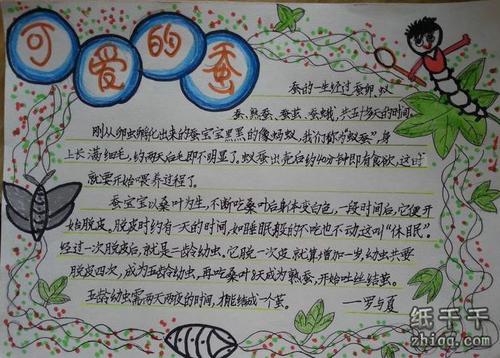 可爱的蚕
蚕的一生经过蚕卵、蚁
蚕、熟蚕、蚕茧、蚕蛾,共五十多天的时间。
刚从卵虫孵化出来的蚕宝宝黑黑的像蚂蚁,我们称为“蚁蚕”,身
上长满细毛,约两天后毛即不明显了,蚁蚕出壳后约40分钟即有食欲,这时
就要开始喂养过程了。
蚕宝宝以桑叶为生,不断吃桑叶后身体变白色,一段时间后,它便开
始脱皮。脱皮时约有一天的时间,如睡眠般的不吃也不动,这叫“休眠”。
经过一次脱皮后,就是二龄幼虫。它脱一次皮就算增加一岁,幼虫共要
脱皮四次,成为五龄幼虫,再吃桑叶8天成为熟蚕,开始吐丝结茧。
五龄幼虫需两天两夜的时间,才能结成一个茧。
——罗与夏
纸千千
zhiqq.com